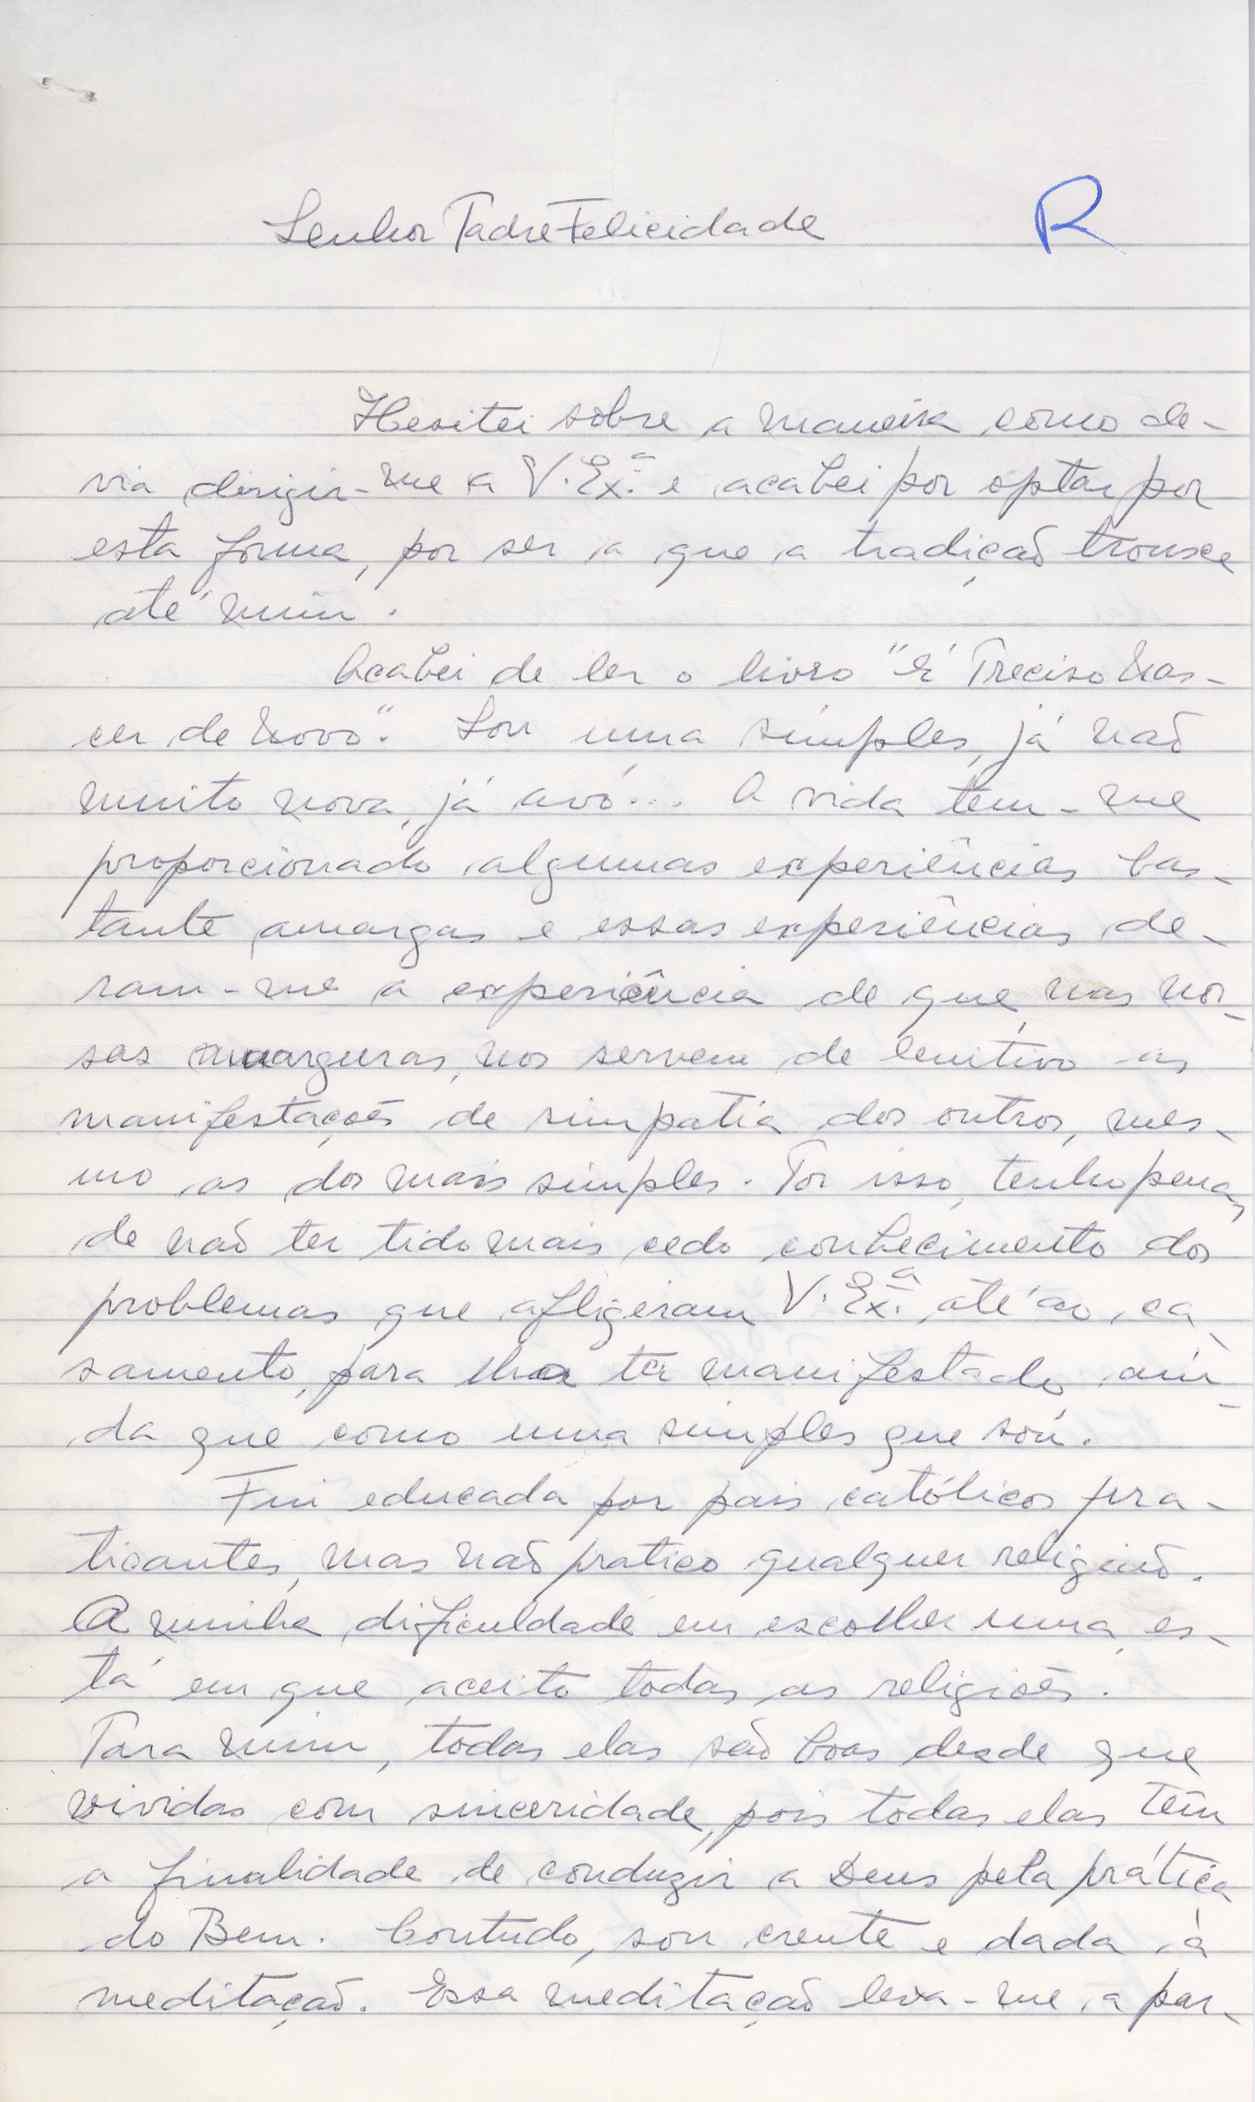 Senhor Padre Felicidade
R
Hesitei sobre a maneira como de-
via dirigir-me a V. Ex.ª e acabei por optar por
esta forma, por ser a que a tradição trouxe
até mim.
Acabei de ler o livro "É Preciso Nas-
cer de Novo". Sou uma simples, já não
muito nova, já avó... A vida tem-me
proporcionado algumas experiências bas-
tante amargas e essas experiências de-
ram-me a experiência de que, nas nos-
sas amarguras, nos servem de lenitivo as
manifestações de simpatia dos outros, mes-
mo as dos mais simples. Por isso, tenho pena,
de não ter tido mais cedo conhecimento dos
problemas que afligiram V. Ex.ª até ao ca-
samento, para lha ter manifestado, ain-
da que como uma simples que sou.
Fui educada por pais católicos pra-
ticantes, mas não pratico qualquer religião.
A minha dificuldade em escolher uma, es-
tá em que aceito todas as religiões.
Para mim, todas elas são boas desde que
vividas com sinceridade, pois todas elas têm
a finalidade de conduzir a Deus pela prática
do Bem. Contudo, sou crente e dada à
meditação. Essa meditação leva-me a par-